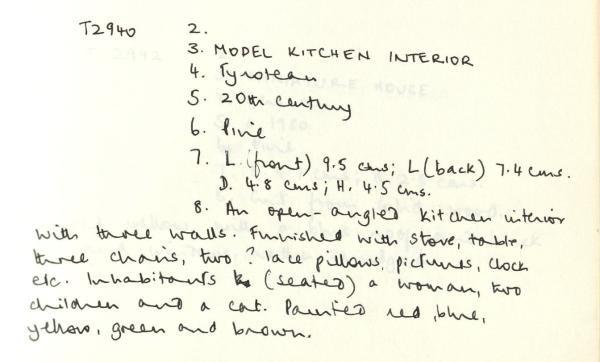 T2940 2.
3. MODEL KITCHEN INTERIOR
4. Tyrolean
5. 20th century
6. Pine
7. L. (front) 9.5 cms; L (back) 7.4 cms.
D. 4.8 cms; H. 4.5 cms.
8. An open-angled kitchen interior
with three walls. Furnished with stove, table,
three chairs, two ? lace pillows, pictures, clock
etc. Inhabitants (seated) a woman, two
children and a cat. Painted red, blue,
yellow, green and brown.